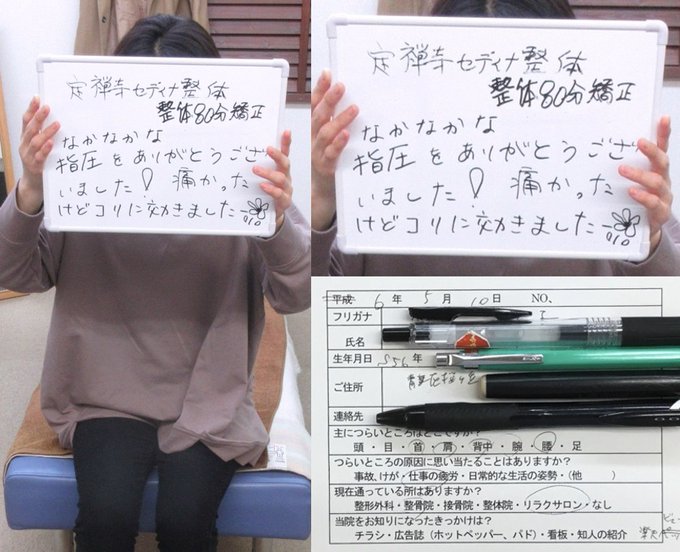 定禅寺セディナ整体
整体80分矯正
なかなかな
指圧をありがとうござ
いました！ 痛かった
けどコリに効きました
定禅寺セディナ整体
整体80分矯正
なかなかな
指圧をありがとうござ
いました！ 痛かった
けどコリに効きました
平成 6年 5月 10日 NO、
フリガナ
氏名
生年月日 S56年
ご住所
連絡先
主につらいところはどこですか？
頭・目・首・肩・背中・腕・腰・足
つらいところの原因に思い当たることはありますか？
事故、けが・仕事の疲労・日常的な生活の姿勢・(他 )
現在通っている所はありますか？
整形外科・整骨院・接骨院・整体院・リラクサロン・なし
当院をお知りになったきっかけは？
チラシ・広告誌（ホットペッパー、パド）・看板・知人の紹介